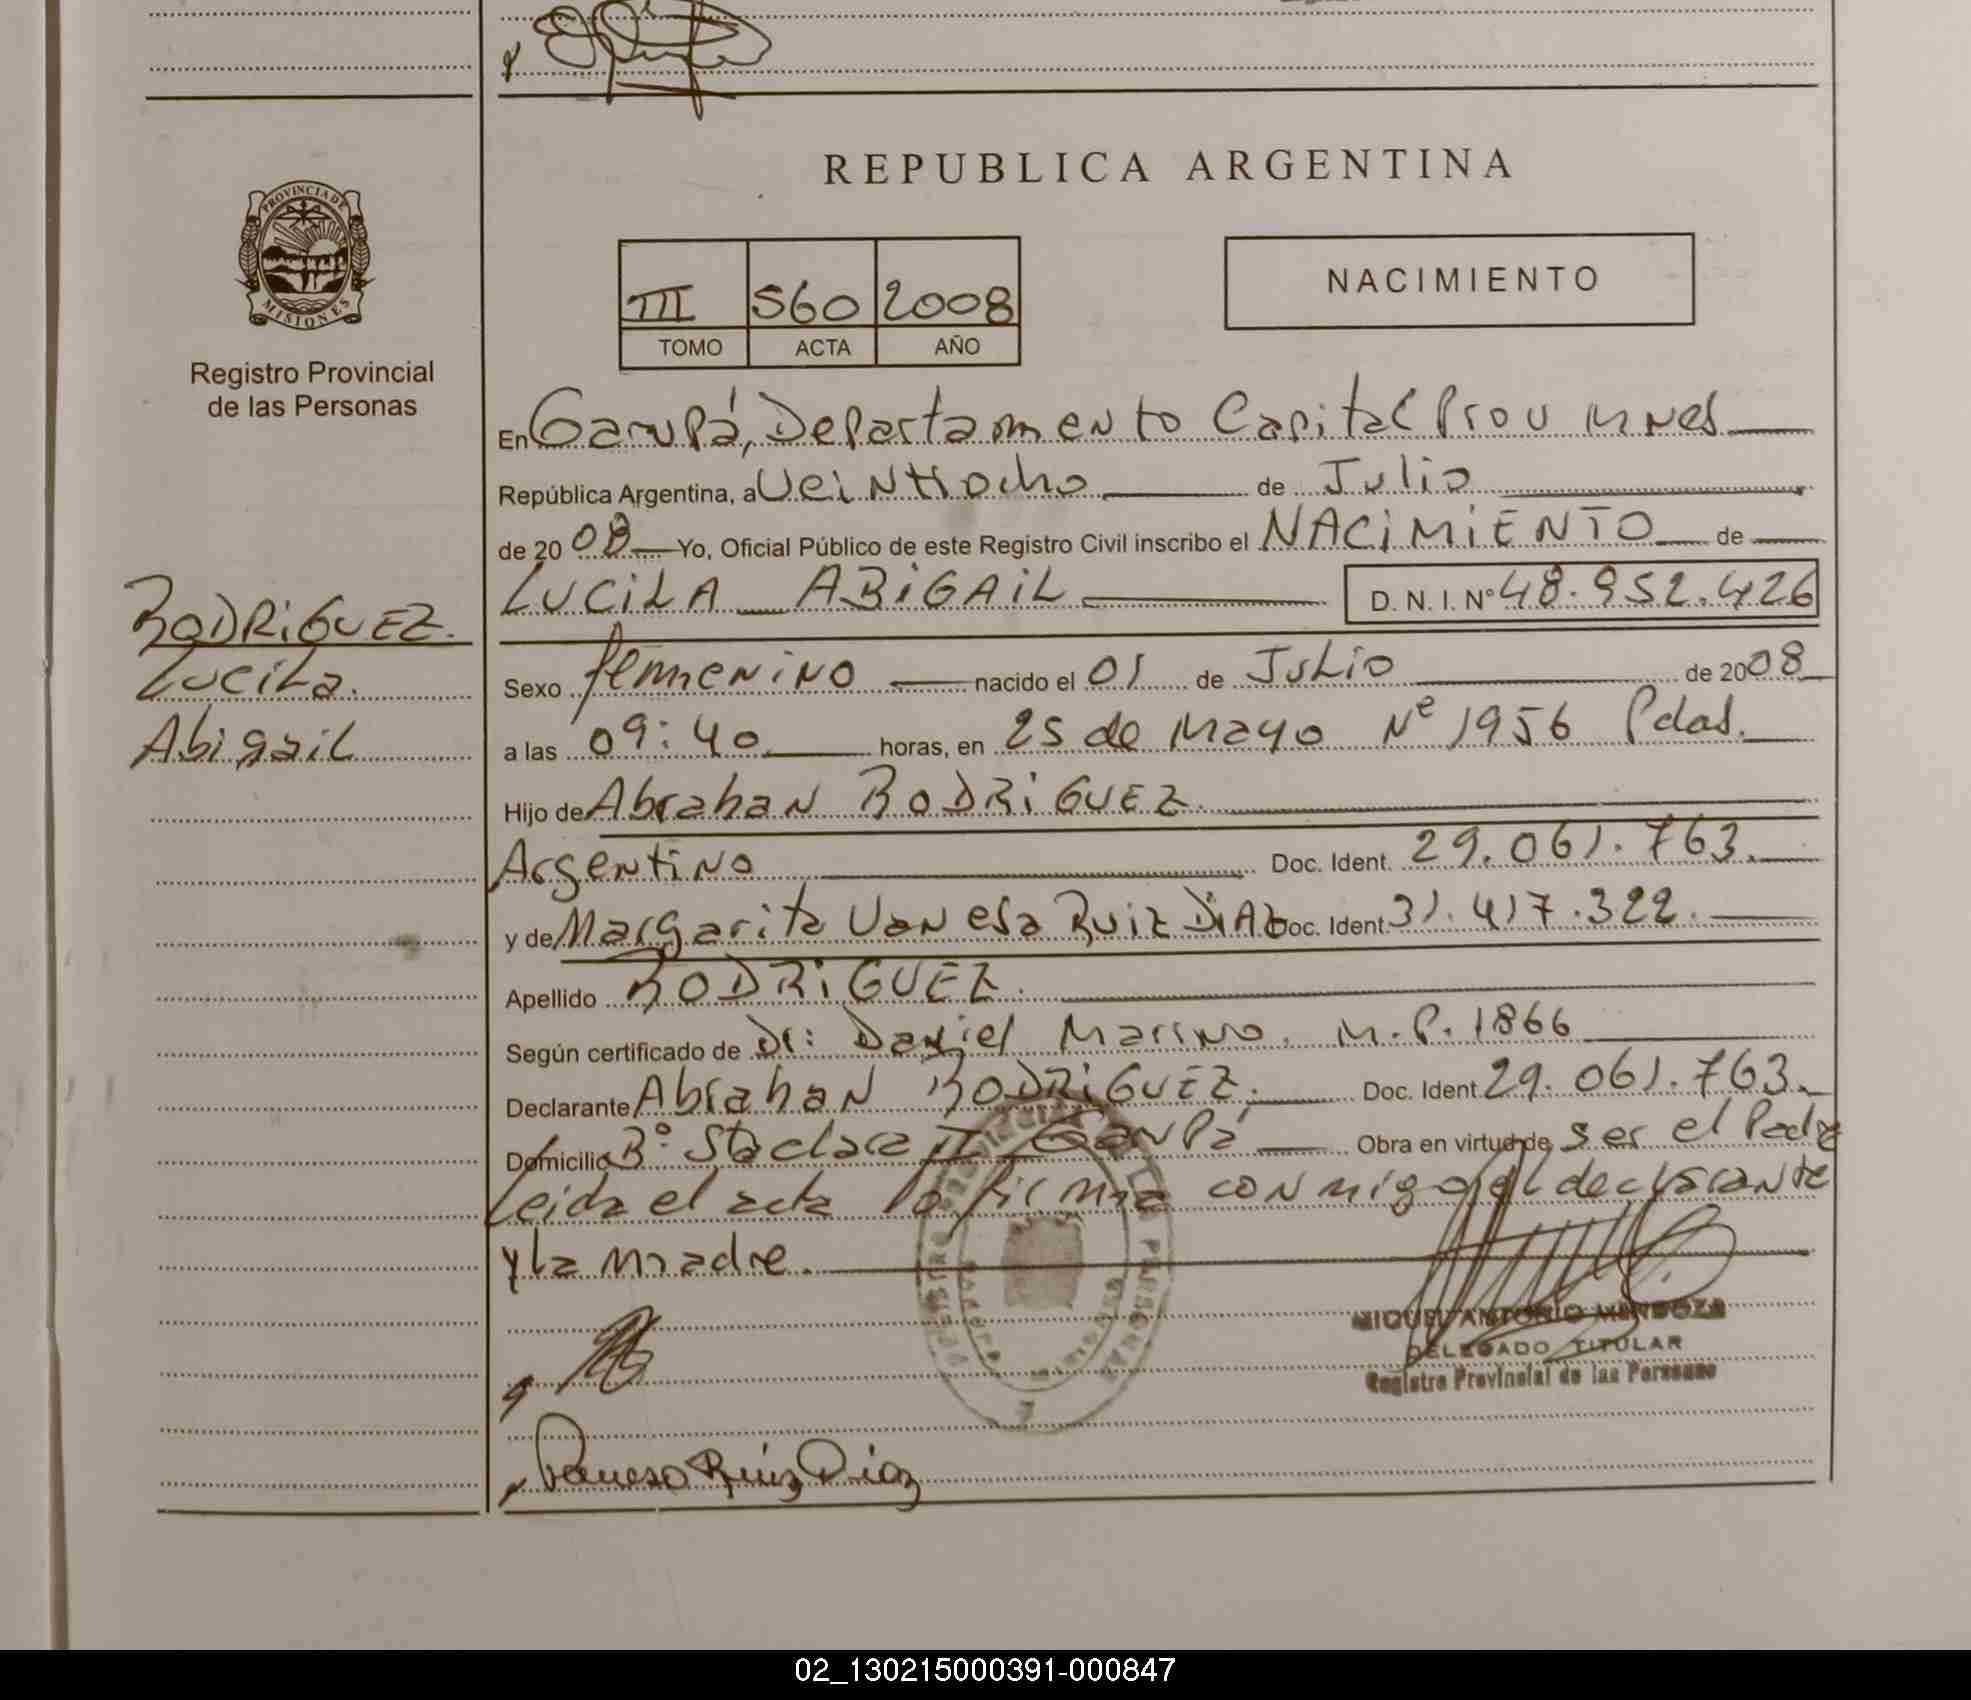 REPUBLICA ARGENTINA
PROVINCIA DE
MISIONES
Registro Provincial
de las Personas
NACIMIENTO
III 560 2008
TOMO ACTA AÑO
En Garupá, Departamento Capital Prov Mnes
República Argentina, a Veintiocho de Julio
de 20 08 Yo, Oficial Público de este Registro Civil inscribo el NACIMIENTO de
LUCILA ABIGAIL D. N. I. N° 48.952.426
RODRIGUEZ.
Lucila.
Abigail
Sexo femenino nacido el 01 de Julio de 2008
a las 09:40 horas, en 25 de Mayo Nº 1956 Pdas.
Hijo de Abrahan RODRIGUEZ.
Argentino Doc. Ident. 29.061.763.
y de Margarita Vanesa Ruiz DiAz Doc. Ident. 31.417.322.
Apellido RODRIGUEZ.
Según certificado de Dr: Daniel Marino. M.P. 1866
Declarante Abrahan RODRIGUEZ. Doc. Ident. 29.061.763.
Domicilio B° Sta clara II Garupá Obra en virtud de ser el Padre
Leida el acta la firma conmigo el declarante
y la madre.
MIGUEL ANTONIO MENDOZA
DELEGADO TITULAR
Registro Provincial de las Personas
Vanesa Ruiz Diaz
02_130215000391-000847